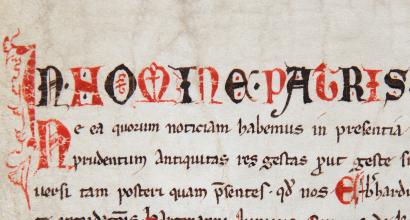 IN·NOMINE·PATRIS·
Ne ea quorum noticiam habemus in presentia
prudentum antiquitas res gestas put geste si
uersi tam posteri quam psentes· qd nos Ebhard